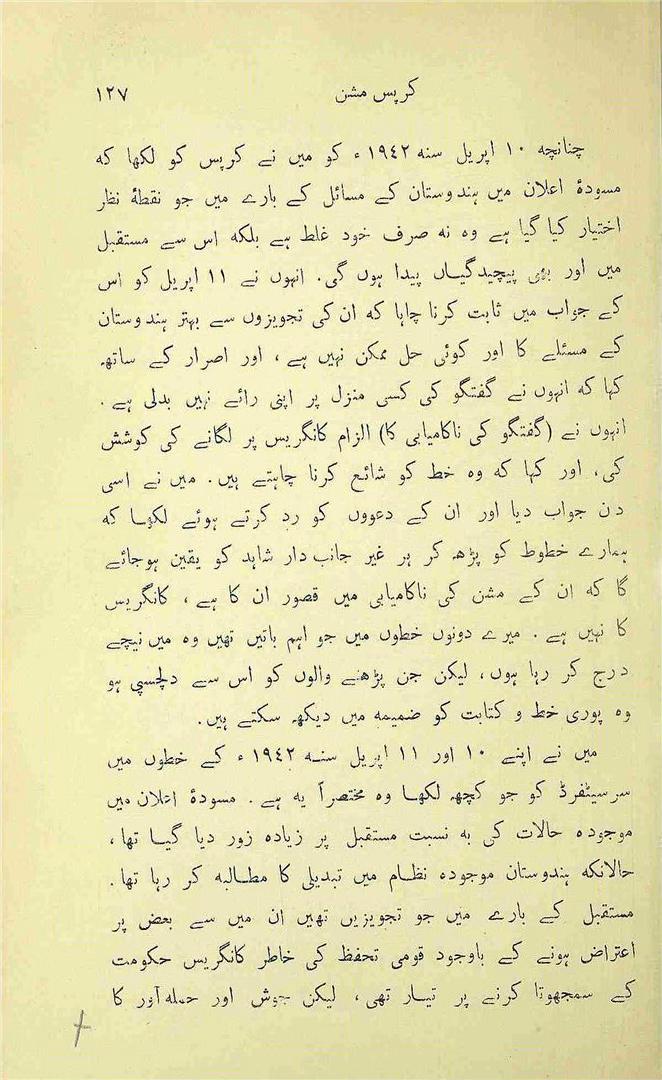 کرپس مشن ۱۲۷
چنانچہ ۱۰ اپریل سنہ ۱۹٤۲ء کو میں نے کرپس کو لکھا کہ
مسودۂ اعلان میں ہندوستان کے مسائل کے بارے میں جو نقطۂ نظر
اختیار کیا گیا ہے وہ نہ صرف خود غلط ہے بلکہ اس سے مستقبل
میں اور بھی پیچیدگیاں پیدا ہوں گی. انہوں نے ۱۱ اپریل کو اس
کے جواب میں ثابت کرنا چاہا کہ ان کی تجویزوں سے بہتر ہندوستان
کے مسئلے کا اور کوئی حل ممکن نہیں ہے، اور اصرار کے ساتھ
کہا کہ انہوں نے گفتگو کی کسی منزل پر اپنی رائے نہیں بدلی ہے.
انہوں نے (گفتگو کی ناکامیابی کا) الزام کانگریس پر لگانے کی کوشش
کی، اور کہا کہ وہ خط کو شائع کرنا چاہتے ہیں. میں نے اسی
دن جواب دیا اور ان کے دعووں کو رد کرتے ہوئے لکھا کہ
ہمارے خطوط کو پڑھ کر ہر غیر جانب دار شاہد کو یقین ہوجائے
گا کہ ان کے مشن کی ناکامیابی میں قصور ان کا ہے، کانگریس
کا نہیں ہے. میرے دونوں خطوں میں جو اہم باتیں تھیں وہ میں نیچے
درج کر رہا ہوں، لیکن جن پڑھنے والوں کو اس سے دلچسپی ہو
وہ پوری خط و کتابت کو ضمیمہ میں دیکھ سکتے ہیں.
میں نے اپنے ۱۰ اور ۱۱ اپریل سنہ ۱۹٤۲ء کے خطوں میں
سرسیٹفرڈ کو جو کچھ لکھا وہ مختصراً یہ ہے. مسودۂ اعلان میں
موجودہ حالات کی بہ نسبت مستقبل پر زیادہ زور دیا گیا تھا،
حالانکہ ہندوستان موجودہ نظام میں تبدیلی کا مطالبہ کر رہا تھا.
مستقبل کے بارے میں جو تجویزیں تھیں ان میں سے بعض پر
اعتراض ہونے کے باوجود قومی تحفظ کی خاطر کانگریس حکومت
کے سمجھوتا کرنے پر تیار تھی، لیکن جوش اور حملہ آور کا